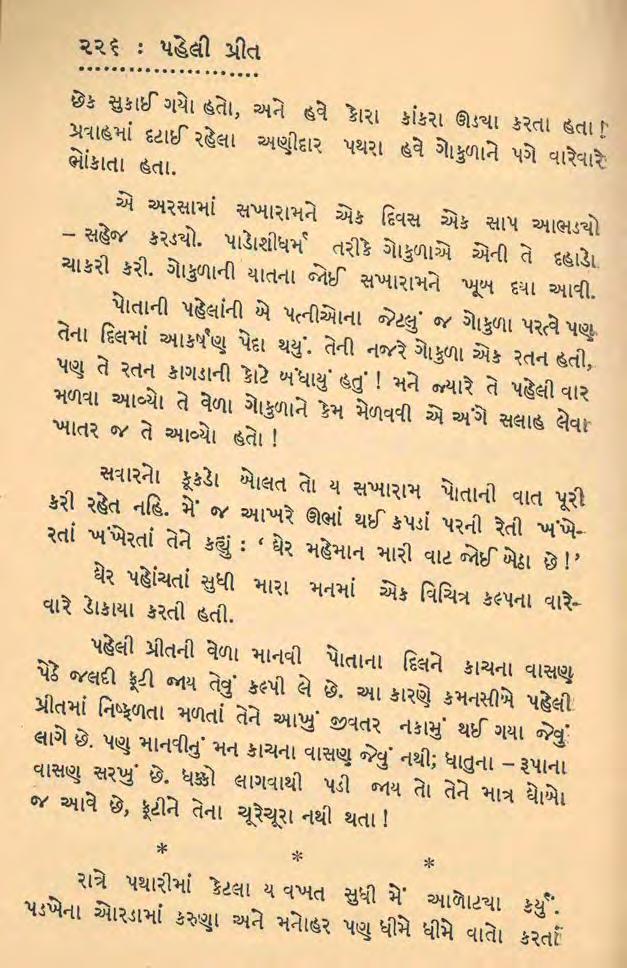 ૨૨૬ : પહેલી પ્રીત
છેક સુકાઈ ગયો હતો, અને હવે કોરા કાંકરા ઊડ્યા કરતા હતા !
પ્રવાહમાં દટાઈ રહેલા અણીદાર પથરા હવે ગોકુળાને પગે વારેવારે
ભોંકાતા હતા.
એ અરસામાં સખારામને એક દિવસ એક સાપ આભડ્યો
– સહેજ કરડ્યો. પાડોશીધર્મ તરીકે ગોકુળાએ એની તે દહાડો
ચાકરી કરી. ગોકુળાની યાતના જોઈ સખારામને ખૂબ દયા આવી.
પોતાની પહેલાંની એ પત્નીઓના જેટલું જ ગોકુળા પરત્વે પણ
તેના દિલમાં આકર્ષણ પેદા થયું. તેની નજરે ગોકુળા એક રતન હતી,
પણ તે રતન કાગડાની કોટે બંધાયું હતું ! મને જ્યારે તે પહેલી વાર
મળવા આવ્યો તે વેળા ગોકુળાને કેમ મેળવવી એ અંગે સલાહ લેવા
ખાતર જ તે આવ્યો હતો !
સવારનો કૂકડો બોલત તો ય સખારામ પોતાની વાત પૂરી
કરી રહેત નહિ. મેં જ આખરે ઊભાં થઈ કપડાં પરની રેતી ખંખે-
રતાં ખંખેરતાં તેને કહ્યું : ‘ ઘેર મહેમાન મારી વાટ જોઈ બેઠા છે !’
ઘેર પહોંચતાં સુધી મારા મનમાં એક વિચિત્ર કલ્પના વારે-
વારે ડોકાયા કરતી હતી.
પહેલી પ્રીતની વેળા માનવી પોતાના દિલને કાચના વાસણ
પેઠે જલદી ફૂટી જાય તેવું કલ્પી લે છે. આ કારણે કમનસીબે પહેલી
પ્રીતમાં નિષ્ફળતા મળતાં તેને આખું જીવતર નકામું થઈ ગયા જેવું
લાગે છે. પણ માનવીનું મન કાચના વાસણ જેવું નથી; ધાતુના – રૂપાના
વાસણ સરખું છે. ધક્કો લાગવાથી પડી જાય તો તેને માત્ર ઘોબો
જ આવે છે, ફૂટીને તેના ચૂરેચૂરા નથી થતા !
* * *
રાત્રે પથારીમાં કેટલા ય વખત સુધી મેં આળોટ્યા કર્યું.
પડખેના ઓરડામાં કરુણા અને મનોહર પણ ધીમે ધીમે વાતો કરતાં